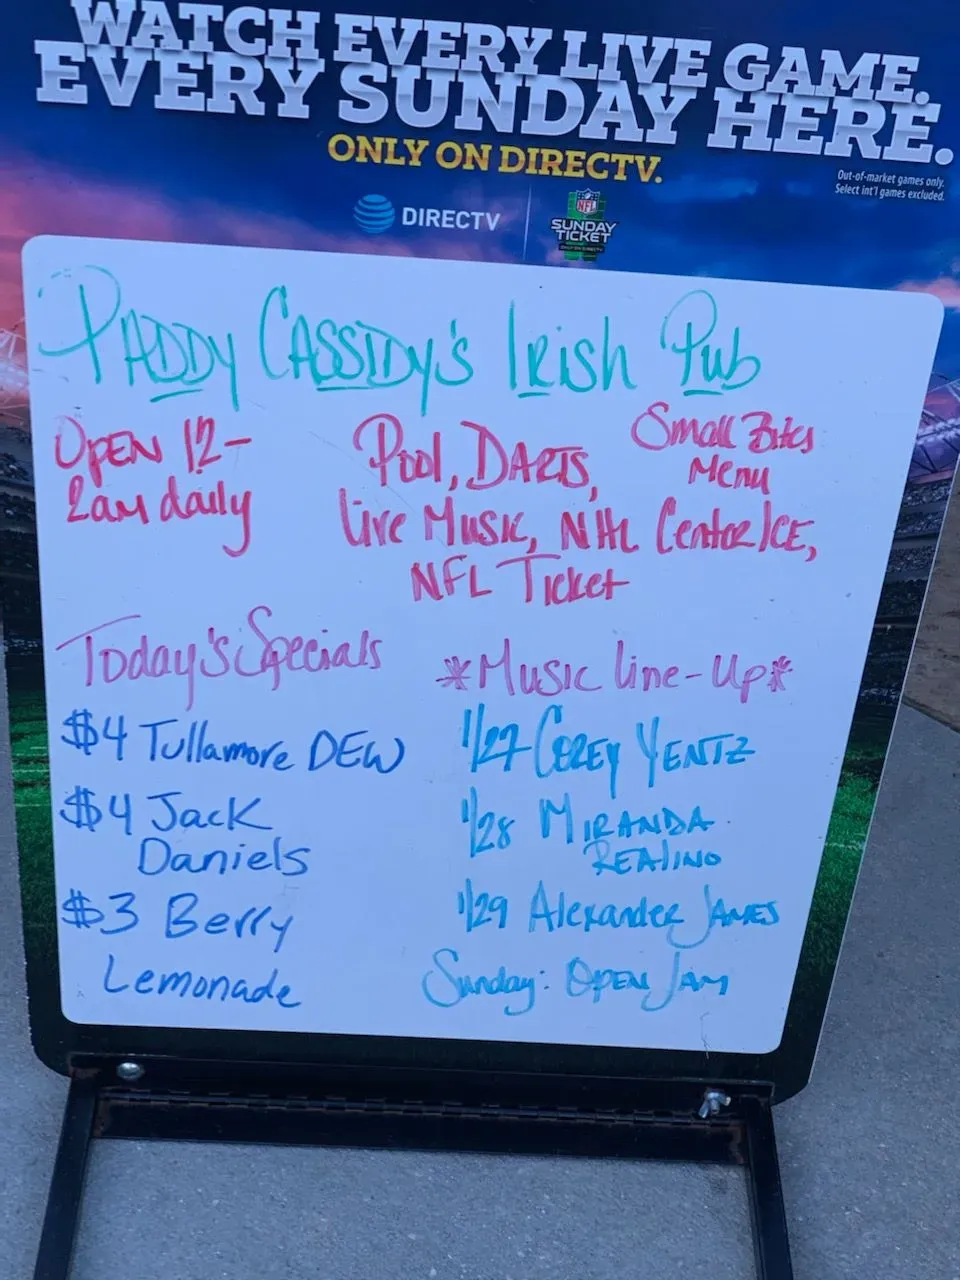 WATCH EVERY LIVE GAME.
EVERY SUNDAY HERE.
ONLY ON DIRECTV.
Out-of-market games only.
Select int'l games excluded.
DIRECTV
NFL
SUNDAY
TICKET
PADDY CASSIDY'S IRISH PUB
OPEN 12-
2AM daily
Pool, DARTS,
Small Bites
Menu
Live Music, NHL Center ICE,
NFL Ticket
Today's Specials
$4 Tullamore DEW
$4 Jack
Daniels
$3 Berry
Lemonade
*Music Line-Up*
1/27 COREY YENTZ
1/28 MIRANDA
REALINO
1/29 Alexander JAMES
Sunday: OPEN JAM